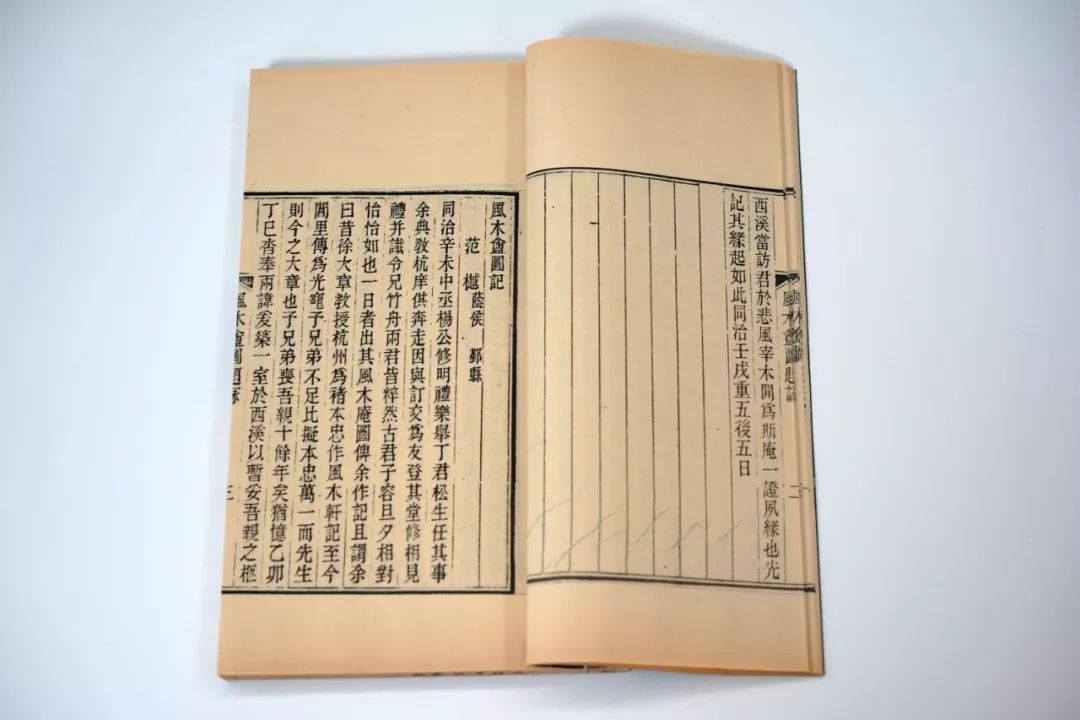 西溪當訪君於悲風宰木閒爲斯庵一證夙緣也光
記其緣起如此同治壬戌重五後五日
二
風木盦圖記
范樾蔭侯 鄞縣
同治辛未中丞楊公修明禮樂舉丁君松生任其事
余典敎杭庠供奔走因與訂交爲友登其堂修相見
禮并識令兄竹舟兩君皆粹然古君子容旦夕相對
怡怡如也一日者出其風木庵圖俾余作記且謂余
曰昔徐大章敎授杭州爲褚本忠作風木軒記至今
閭里傳爲光寵子兄弟不足比擬本忠萬一而先生
則今之大章也子兄弟喪吾親十餘年矣猶憶乙卯
丁巳沓奉兩諱爰築一室於西溪以暫妥吾親之柩
風木盦圖題詠
三